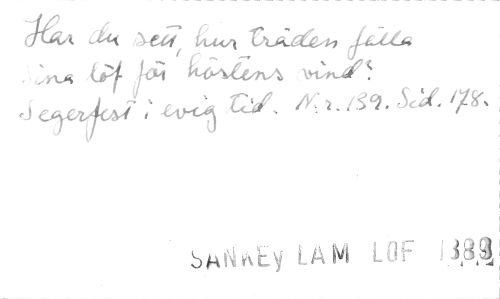 Har du sett, hur träden fälla
sina löf för höstens vind?
Segerfest i evig tid. N:r. 139. Sid. 178.
SANKEY LAM LOF 1889